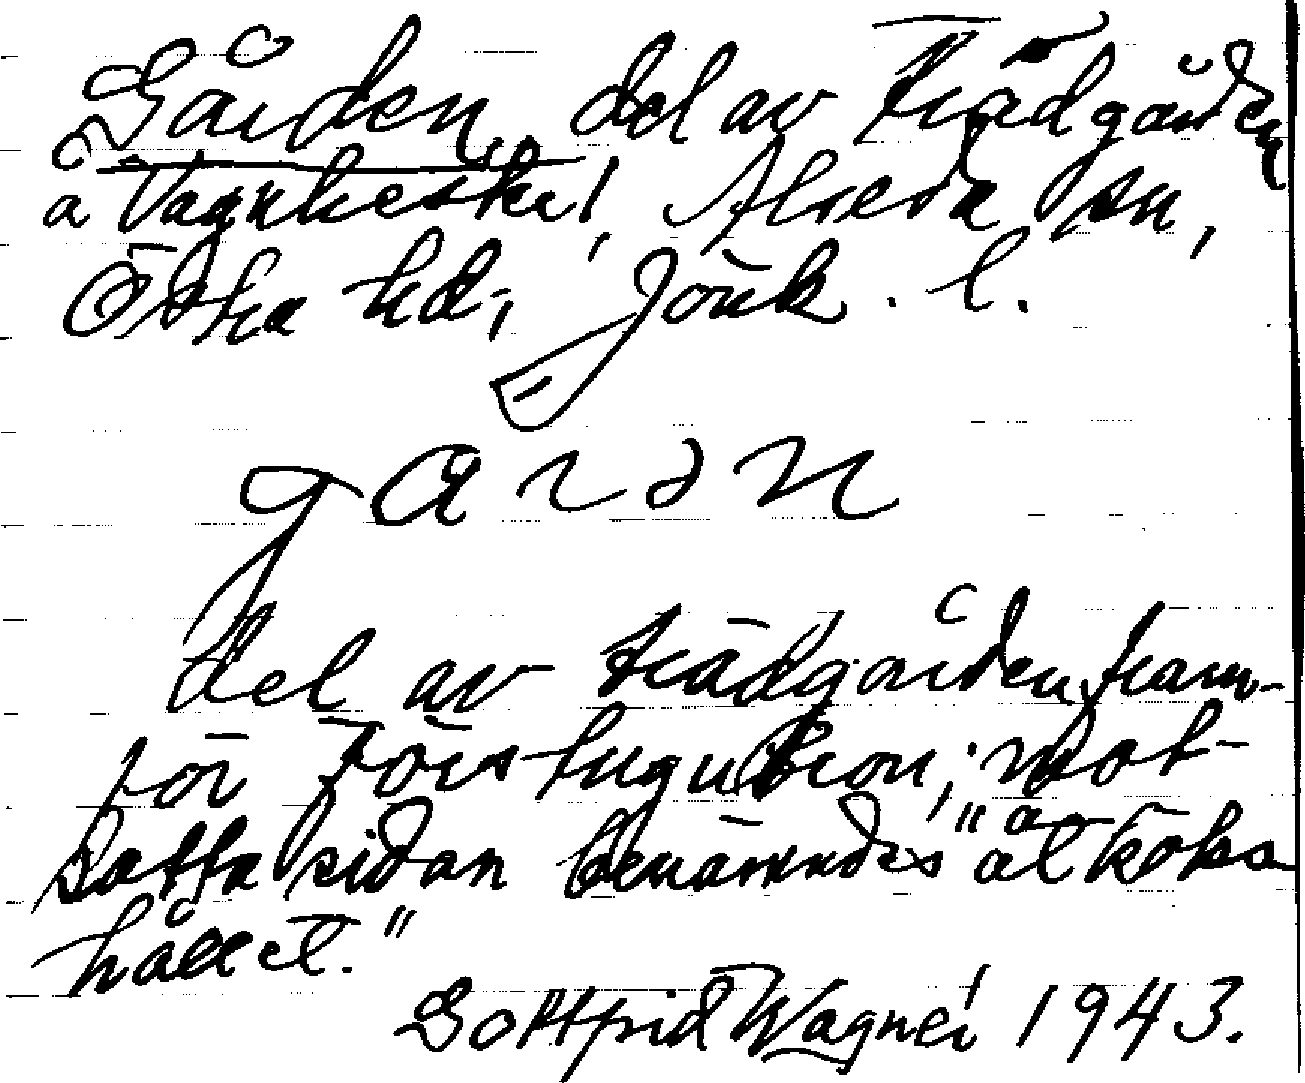 Gården, del av trädgården
å Vagnhester, Alseda sn,
Östra hd, Jönk. l.
garən
del av trädgården fram-
för förstugubron; mot-
satta sidan benämndes "åt köks
hållet."
Gottfrid Wagner 1943.